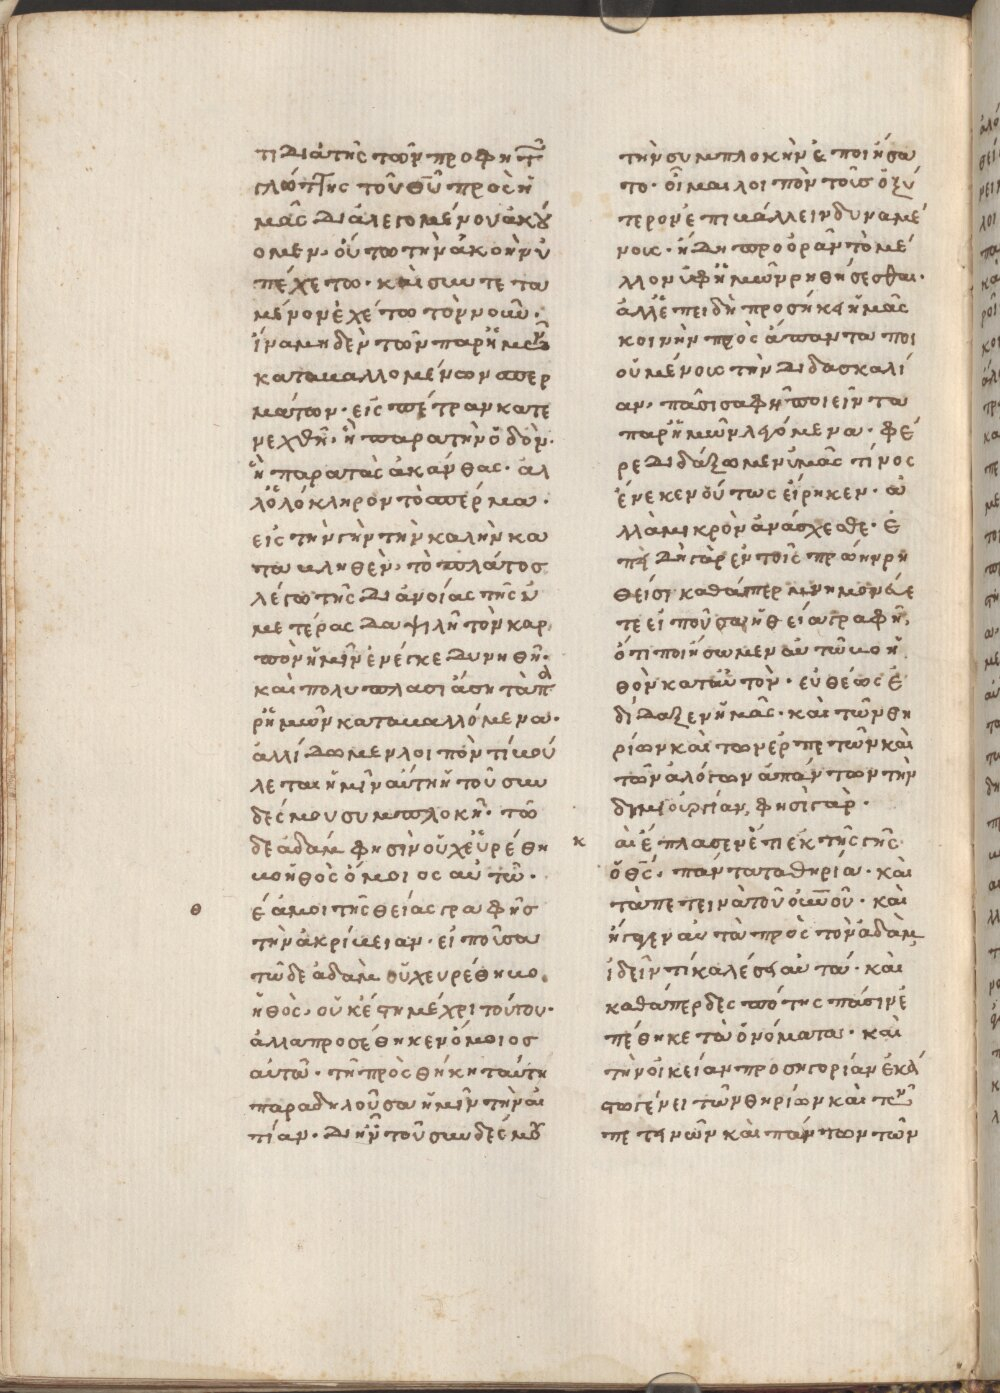 τι διὰ τῆς τῶν προφητ
γλώττης τοῦ θῡ πρὸς ἡ
μᾶς διαλεγομένου ἀκού
ομεν, οὕτω τὴν ἀκοὴν ὑ
πέχετω· καὶ συντετα
μένον ἐχέτω τὸν νοῦν·
ἵνα μηδὲν τῶν παρ ἡμῶν
καταβαλλομένων σπερ
μάτων· εἰς πέτραν κατε
νεχθῆ· ἢ παρα τὴν ὁδὸν·
ἢ παρα τὰς ἀκάνθας· ἀλ
λ ὁλόκληρον τὸ σπέρμα·
εἰς τὴν γῆν τὴν καλὴν κα
ταβληθὲν, τὸ πλάτος
λέγω τῆς διανοίας τῆς ὑ
μετέρας δαψιλῆ τὸν καρ
πὸν ἡμῖν ἐνέγκε δυνηθῆ·
καὶ πολυπλασιάση τὰ πα
ρ ἡμῶν καταβαλλόμενα·
ἀλλ ἴδωμεν λοιπὸν τί βού
λεται ἡμῖν αὕτη ἡ τοῦ συν
δέσμου συμπλοκή· τῶ
δε ἀδὰμ φησὶν οὐχ εὑρέθη
βοηθὸς ὅμοιος αὐτῶ·
θ ἔα μοι τῆς θείας γραφῆς
τὴν ἀκρίβειαν· εἰποῦσα
τῶ δε ἀδὰμ οὐχ ευρέθη βο
ηθὸς, οὐκ ἔστη μέχρι τούτου·
ἀλλα προσέθηκεν ὅμοιος
αὐτῶ· τῆ προσθήκη ταύτη
παραδηλοῦσα ἡμῖν τὴν αἰ
τίαν· δι ἣν τοῦ συνδέσμου
τὴν συμπλοκὴν ἐποιήσα
το· οἶμαι λοιπὸν τοῖς ὀξύ
τερον ἐπιβάλλειν δυναμέ
νοις· ἤδη προορᾶν τὸ μέ
λλον ὑφ ἡμῶν ρηθήσεσθαι·
ἀλλ ἐπειδὴ προσήκει ἡμᾶς
κοινὴν πρὸς ἅπαντα ποι
οὐμένοις τὴν διδασκαλί
αν, πᾶσι σαφῆ ποιεῖν τα
παρ ἡμῶν λεγόμενα· φέ
ρε διδάξωμεν ὑμᾶς τίνος
ἕνεκεν οὕτως εἴρηκεν· ἀ
λλὰ μικρὸν ἀνάσχεσθε· ἐ
πειδὴ γὰρ ἐν τοῖς πρώην ρη
θεῖσι καθάπερ μνημονεύε
τε εἰποῦσα ἡ θεία γραφῆ,
ὅτι ποιήσωμεν αὐτῶ βοη
θὸν κατ αὐτὸν· εὐθέως ἐ
δίδαξεν ἡμᾶς· καὶ τῶν θη
ρίων καὶ τῶν ἑρπετῶν καὶ
τῶν ἀλόγων ἁπάντων τὴν
δημιουργίαν, φησὶ γὰρ·
κ αὶ ἔπλασεν ἔτι ἐκ τῆς γῆς
ὁ θς, πάντα τα θηρία· καὶ
τὰ πετεινὰ τοῦ οὐνοῦ· καὶ
ἤγαγεν αὐτὰ πρὸς τὸν ἀδὰμ,
ἰδεῖν τί καλέσει αὐτά· καὶ
καθάπερ δεσπότης πάσιν ἐ
πέθηκε τὰ ὀνόματα· καὶ
τὴν οἰκείαν προσηγορίαν ἑκά
στω γένει τῶν θηρίων καὶ τῶν
πετεινῶν καὶ πάντων τῶν